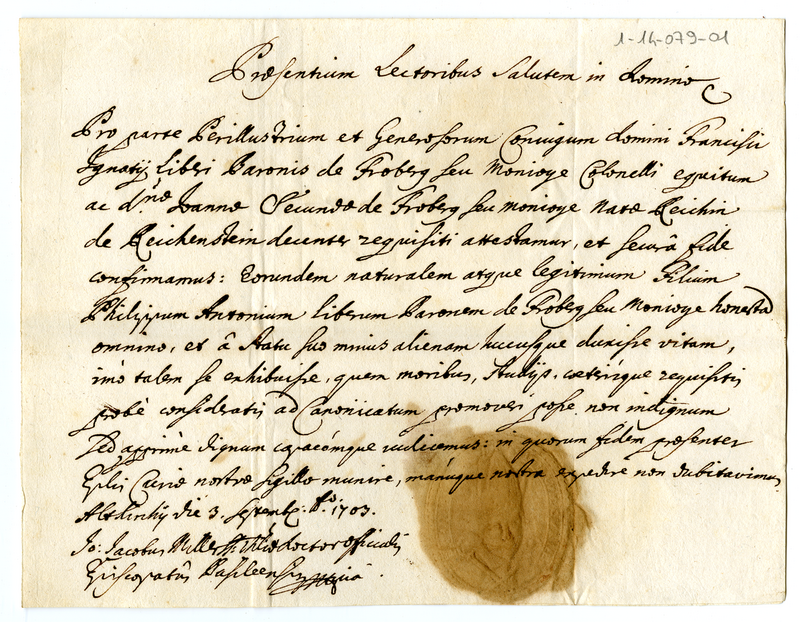 1-14-079-01
Præsentium Lectoribus Salutem in Domino
Pro parte Perillustrium et Generosorum Coniugum Domini Francisci
Ignatij Liberi Baronis de Froberg seu Monioye Colonelli equitum
ac d.næ Joannæ Secundæ de Froberg seu Monioye Natæ Reichin
de Reichenstein decenter requisiti attestamur, et securâ fide
confirmamus: Eorundem naturalem atque legitimum Filium
Philippum Antonium Liberum Baronem de Froberg seu Monioye honestã
omnino, et â statu suo minus alienam hucusque duxisse vitam,
imò talem se exhibuisse, quem moribus, studijs, cæterisque requisitis
probè consideratis ad Canonicatum promoveri posse non indignum
sed apprimè dignum capacémque iudicemus: in quorum fidem præsentes
Eplis Curiæ nostræ sigillo munire, manúque nostra expedire non dubitavimus
Altkirchij die 3. septemb. 1703.
Jo: Jacobus doctor officialis
Episcopatûs Basileensis